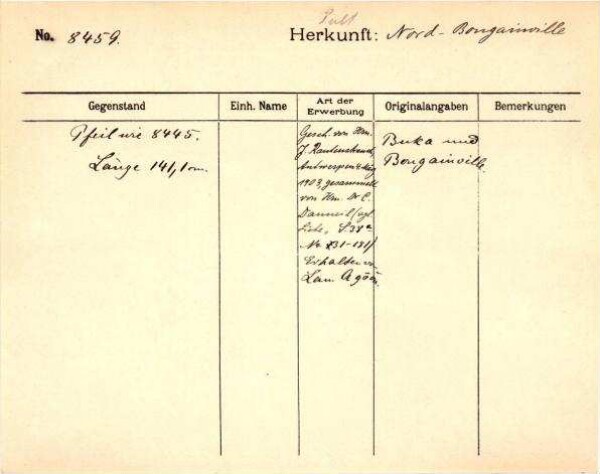 Pult
No. 8459.
Herkunft: Nord-Bougainville
Gegenstand
Einh. Name
Art der Erwerbung
Originalangaben
Bemerkungen
Pfeil wie 8445.
Länge 141,1 cm.
Gesch. von Hrn.
J. Rautenstrauch,
Antwerpen
1903, gesammelt
von Hrn. Dr E.
No 131-131/
Erhalten
Buka und
Bougainville.